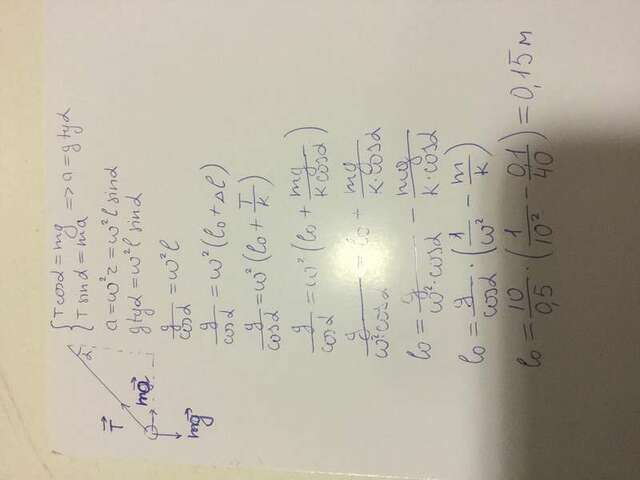 { Tcosα = mg
{ Tsinα = ma => a = gtgα
a = ω²r = ω²l sinα
gtgα = ω²l sinα
g/cosα = ω²l
g/cosα = ω²(l₀ + Δl)
g/cosα = ω²(l₀ + T/k)
g/cosα = ω²(l₀ + mg/kcosα)
g/ω²cosα = l₀ + mg/k·cosα
l₀ = g/ω²·cosα - mg/k·cosα
l₀ = g/cosα · (1/ω² - m/k)
l₀ = 10/0,5 · (1/10² - 0,1/40) = 0,15м
α
T
mg
mg